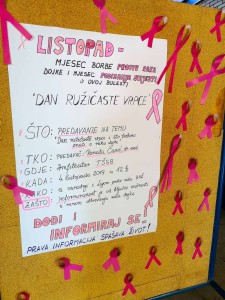 LISTOPAD-
MJESEC BORBE PROTIV RAKA
DOJKE I MJESEC PODIZANJA SVIJESTI
O OVOJ BOLESTI
"DAN RUŽIČASTE VRPCE"
ŠTO: PREDAVANJE NA TEMU
"Dan ružičaste vrpce i što trebamo
znati o raku dojke"
TKO: PREDAVAČ:
GDJE: Amfiteatar TŠŠB
KADA: 4. listopada 2019 u 12
ZAŠTO: informiranost je od ključne važnosti
DOĐI I
INFORMIRAJ SE!
PRAVA INFORMACIJA SPAŠAVA ŽIVOT!